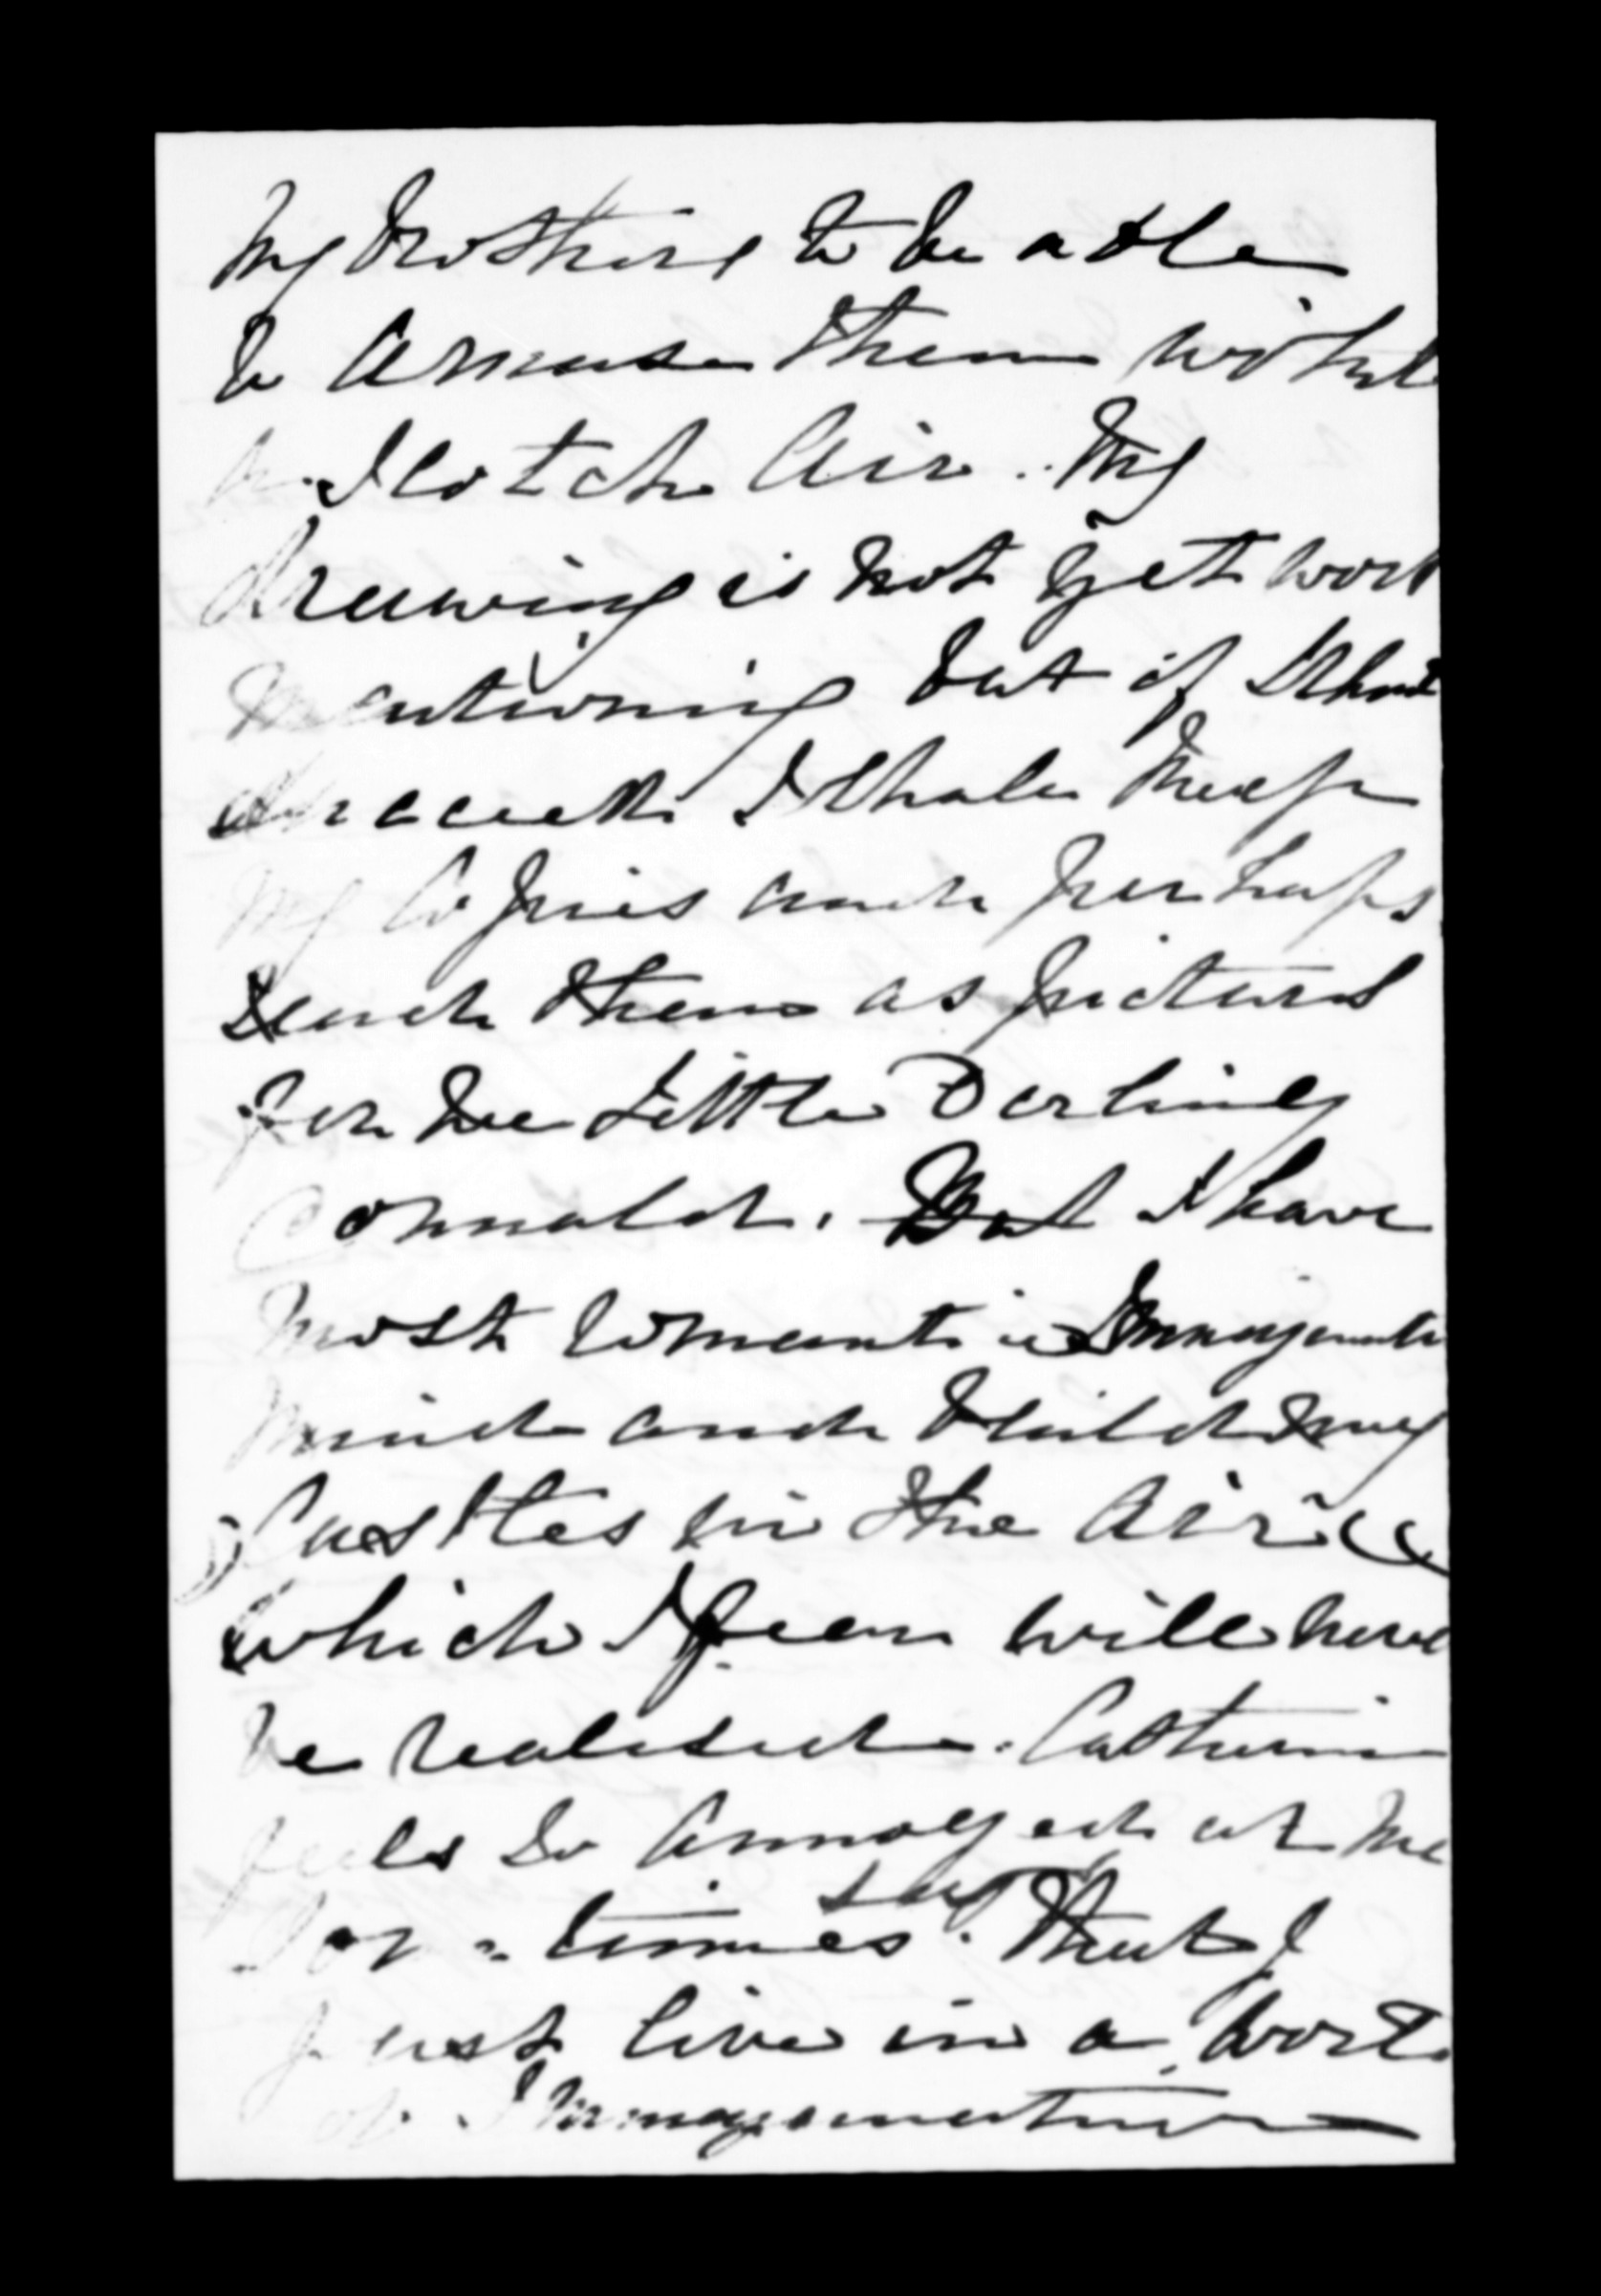 My brothers to be able
to amuse them with
a Scotch Air. My
drawing is not yet wort
mentioning but if I shoud
succeed I shale keep
my copies and perhaps
send them as pictures
for the Little Darling
Connald. But I have
most romantic Immaganati
mind and build my
Castles in the Air
which I fear will neve
be realised. Catherine
feels so annoyed at me
some times say that I
just live in a world
of Immaganation